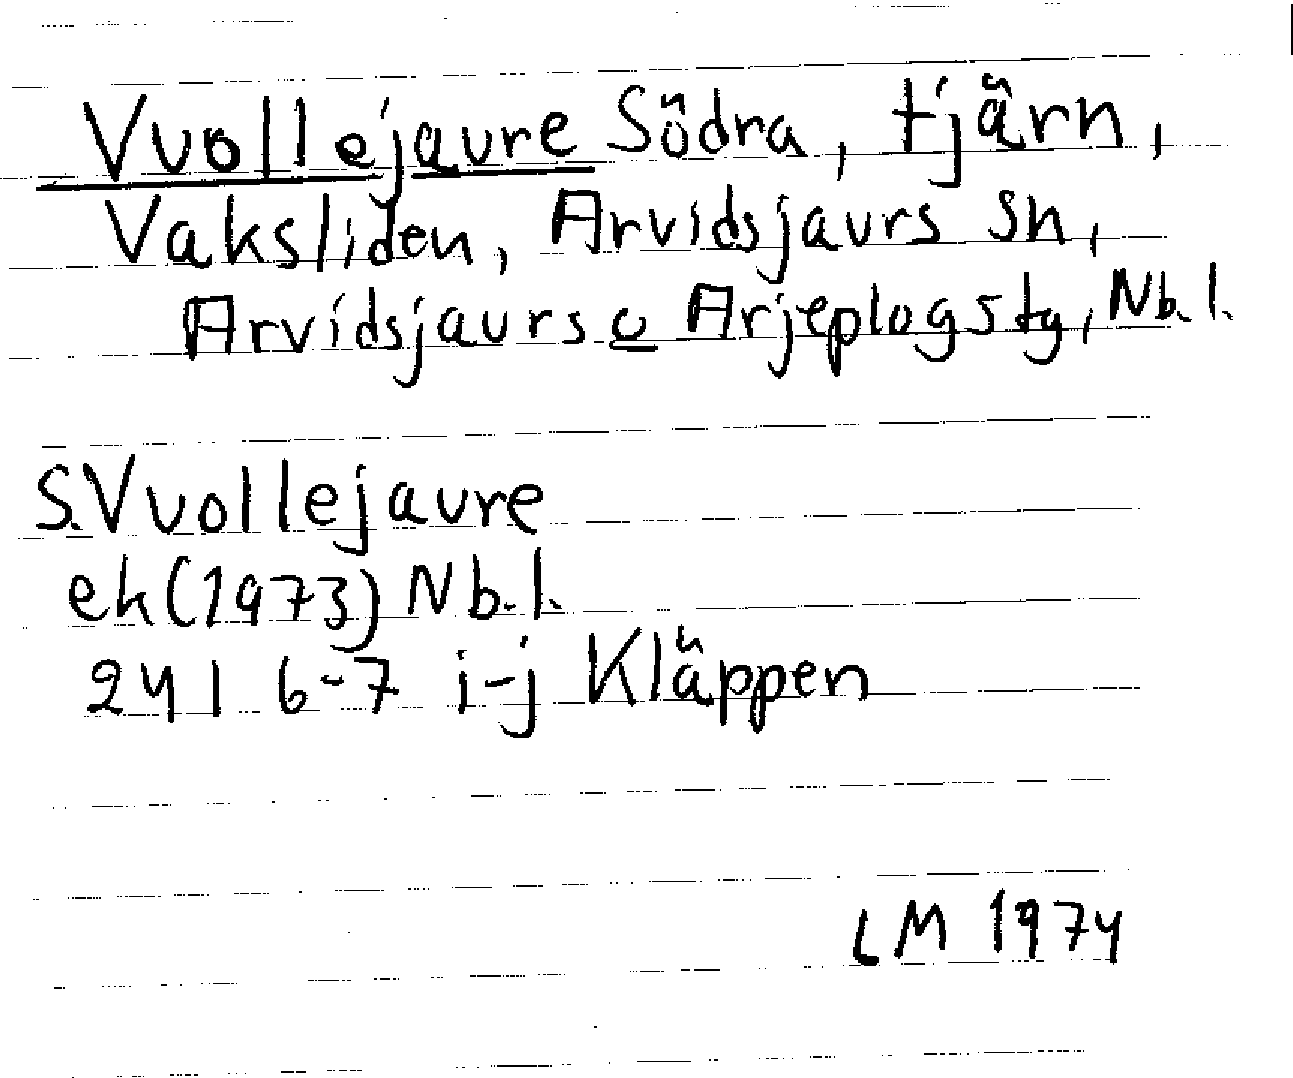 Vuollejaure Södra, tjärn,
Vaksliden, Arvidsjaurs sn,
Arvidsjaurs o Arjeplogs tg, Nb. l.
S. Vuollejaure
ek (1973) Nb. l.
24 I 6-7 i-j Kläppen
LM 1974